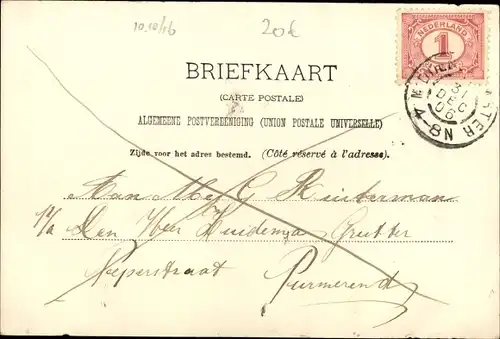 10.10/16
20€
NEDERLAND
1
31
DEC
06
4-8N
BRIEFKAART
(CARTE POSTALE)
ALGEMEENE POSTVEREENIGING (UNION POSTALE UNIVERSELLE)
Zijde voor het adres bestemd. (Côté réservé à l'adresse).
Aan Mej G Ruiterman
p/a Den Heer Zuidema Grutter
Peperstraat Purmerend